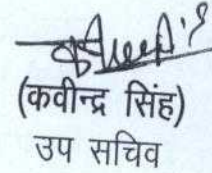 (कवीन्द्र सिंह)
उप सचिव